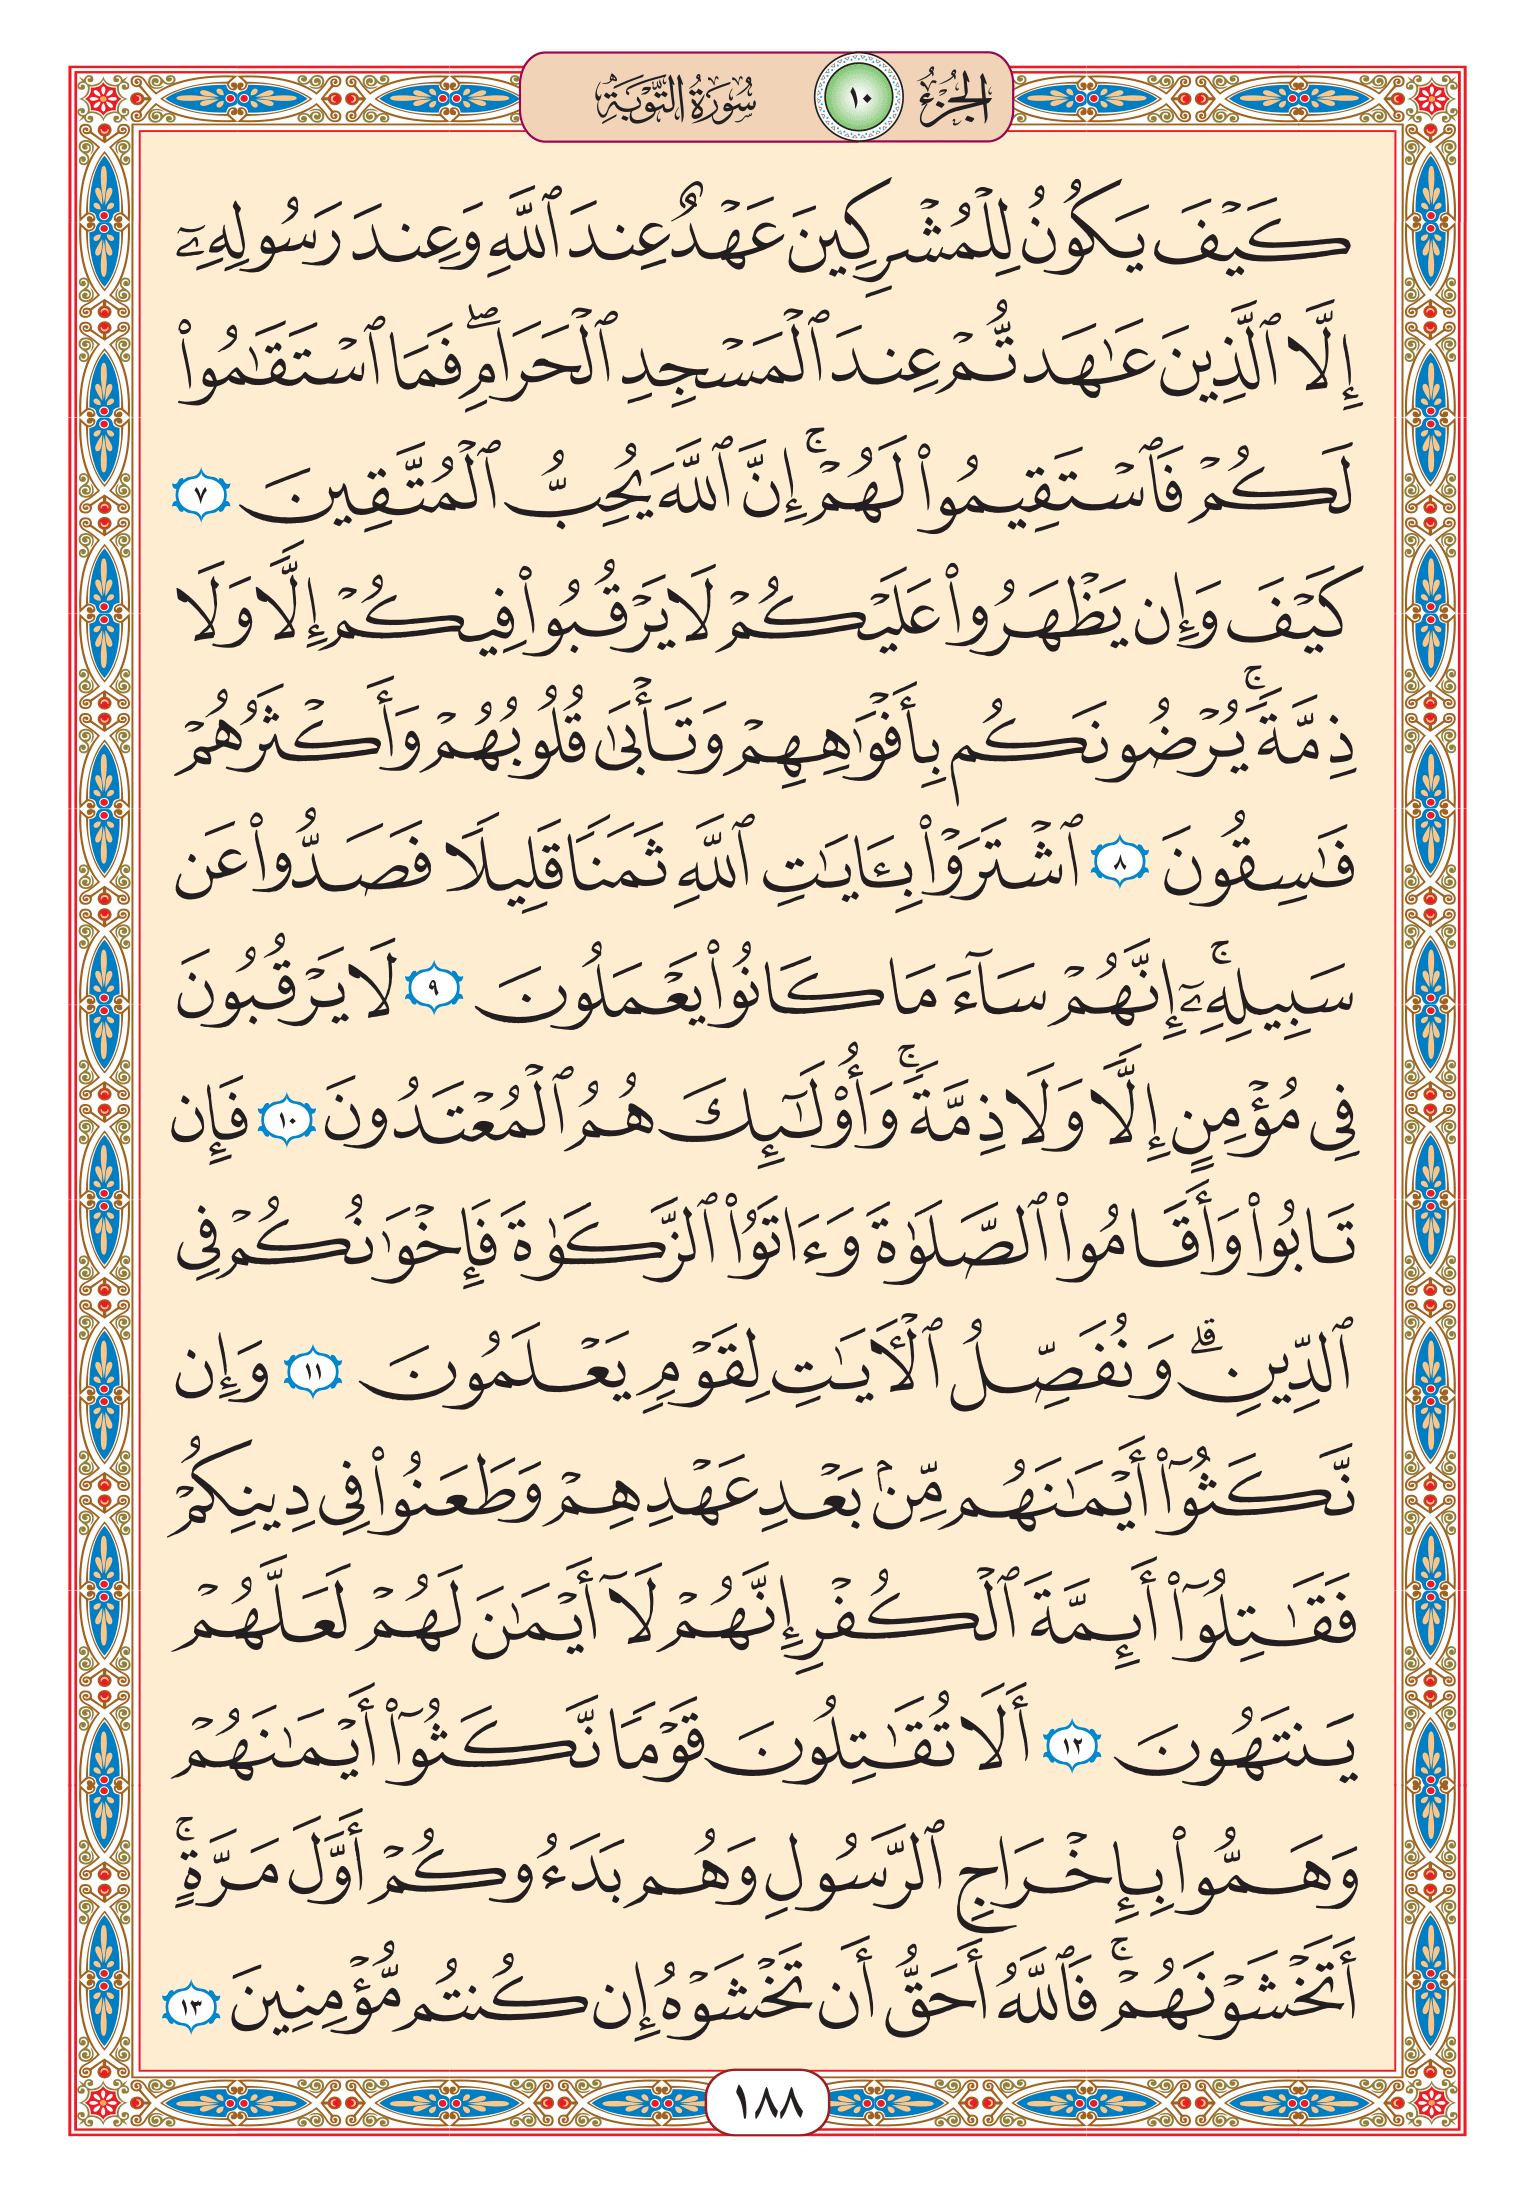 الجزء ١٠ سورة التوبة
كَيْفَ يَكُونُ لِلْمُشْرِكِينَ عَهْدٌ عِندَ ٱللَّهِ وَعِندَ رَسُولِهِۦٓ
إِلَّا ٱلَّذِينَ عَٰهَدتُّمْ عِندَ ٱلْمَسْجِدِ ٱلْحَرَامِۖ فَمَا ٱسْتَقَٰمُوا۟
لَكُمْ فَٱسْتَقِيمُوا۟ لَهُمْۚ إِنَّ ٱللَّهَ يُحِبُّ ٱلْمُتَّقِينَ ٧
كَيْفَ وَإِن يَظْهَرُوا۟ عَلَيْكُمْ لَا يَرْقُبُوا۟ فِيكُمْ إِلًّا وَلَا
ذِمَّةًۚ يُرْضُونَكُم بِأَفْوَٰهِهِمْ وَتَأْبَىٰ قُلُوبُهُمْ وَأَكْثَرُهُمْ
فَٰسِقُونَ ٨ ٱشْتَرَوْا۟ بِـَٔايَٰتِ ٱللَّهِ ثَمَنًا قَلِيلًا فَصَدُّوا۟ عَن
سَبِيلِهِۦٓۚ إِنَّهُمْ سَآءَ مَا كَانُوا۟ يَعْمَلُونَ ٩ لَا يَرْقُبُونَ
فِى مُؤْمِنٍ إِلًّا وَلَا ذِمَّةًۚ وَأُو۟لَٰٓئِكَ هُمُ ٱلْمُعْتَدُونَ ١٠ فَإِن
تَابُوا۟ وَأَقَامُوا۟ ٱلصَّلَوٰةَ وَءَاتَوُا۟ ٱلزَّكَوٰةَ فَإِخْوَٰنُكُمْ فِى
ٱلدِّينِۗ وَنُفَصِّلُ ٱلْـَٔايَٰتِ لِقَوْمٍ يَعْلَمُونَ ١١ وَإِن
نَّكَثُوٓا۟ أَيْمَٰنَهُم مِّنۢ بَعْدِ عَهْدِهِمْ وَطَعَنُوا۟ فِى دِينِكُمْ
فَقَٰتِلُوٓا۟ أَئِمَّةَ ٱلْكُفْرِ إِنَّهُمْ لَآ أَيْمَٰنَ لَهُمْ لَعَلَّهُمْ
يَنتَهُونَ ١٢ أَلَا تُقَٰتِلُونَ قَوْمًا نَّكَثُوٓا۟ أَيْمَٰنَهُمْ
وَهَمُّوا۟ بِإِخْرَاجِ ٱلرَّسُولِ وَهُم بَدَءُوكُمْ أَوَّلَ مَرَّةٍۚ
أَتَخْشَوْنَهُمْۚ فَٱللَّهُ أَحَقُّ أَن تَخْشَوْهُ إِن كُنتُم مُّؤْمِنِينَ ١٣
١٨٨